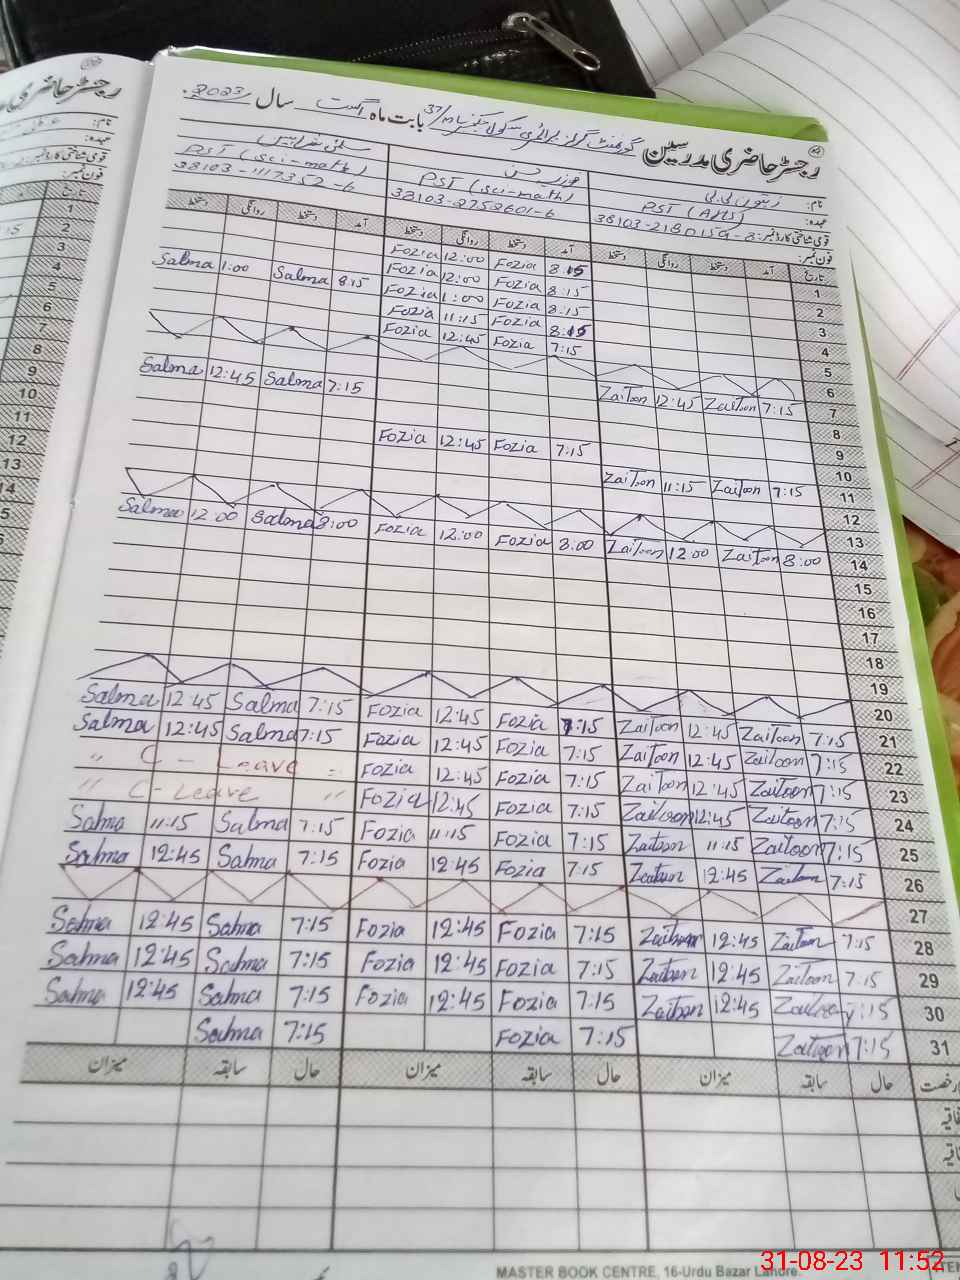 رجسٹر حاضری مدرسین گورنمنٹ گرلز پرائمری سکول بابت ماہ اگست سال 2023
نام: زیتون بی بی فوزیہ سلمیٰ
عہدہ: PST (Arts) PST (Sci-math) PST (Sci-math)
قومی شناختی کارڈ نمبر: 38103-2752601-6 38103-1117352-6
فون نمبر:
تاریخ آمد دستخط روانگی دستخط آمد دستخط روانگی دستخط آمد دستخط روانگی دستخط
1 8:15 Fozia 12:00 Fozia
2 8:15 Fozia 12:00 Fozia 8:15 Salma 1:00 Salma
3 8:15 Fozia 1:00 Fozia
4 8:15 Fozia 11:15 Fozia
5 7:15 Fozia 12:45 Fozia
6
7 7:15 Zaitoon 12:45 Zaitoon 7:15 Salma 12:45 Salma
8
9 7:15 Fozia 12:45 Fozia
10
11 7:15 Zaitoon 11:15 Zaitoon
12
13
14 8:00 Zaitoon 12:00 Zaitoon 8:00 Fozia 12:00 Fozia 8:00 Salma 12:00 Salma
15
16
17
18
19
20
21 7:15 Zaitoon 12:45 Zaitoon 7:15 Fozia 12:45 Fozia 7:15 Salma 12:45 Salma
22 7:15 Zaitoon 12:45 Zaitoon 7:15 Fozia 12:45 Fozia 7:15 Salma 12:45 Salma
23 7:15 Zaitoon 12:45 Zaitoon 7:15 Fozia 12:45 Fozia " C - Leave "
24 7:15 Zaitoon 12:45 Zaitoon 7:15 Fozia 12:45 Fozia " C-Leave "
25 7:15 Zaitoon 11:15 Zaitoon 7:15 Fozia 11:15 Fozia 7:15 Salma 11:15 Salma
26 7:15 Zaitoon 12:45 Zaitoon 7:15 Fozia 12:45 Fozia 7:15 Salma 12:45 Salma
27
28 7:15 Zaitoon 12:45 Zaitoon 7:15 Fozia 12:45 Fozia 7:15 Salma 12:45 Salma
29 7:15 Zaitoon 12:45 Zaitoon 7:15 Fozia 12:45 Fozia 7:15 Salma 12:45 Salma
30 7:15 Zaitoon 12:45 Zaitoon 7:15 Fozia 12:45 Fozia 7:15 Salma 12:45 Salma
31 7:15 Zaitoon 7:15 Fozia 7:15 Salma
رخصت حال سابقہ میزان حال سابقہ میزان حال سابقہ میزان
MASTER BOOK CENTRE, 16-Urdu Bazar Lahore.
31-08-23 11:52